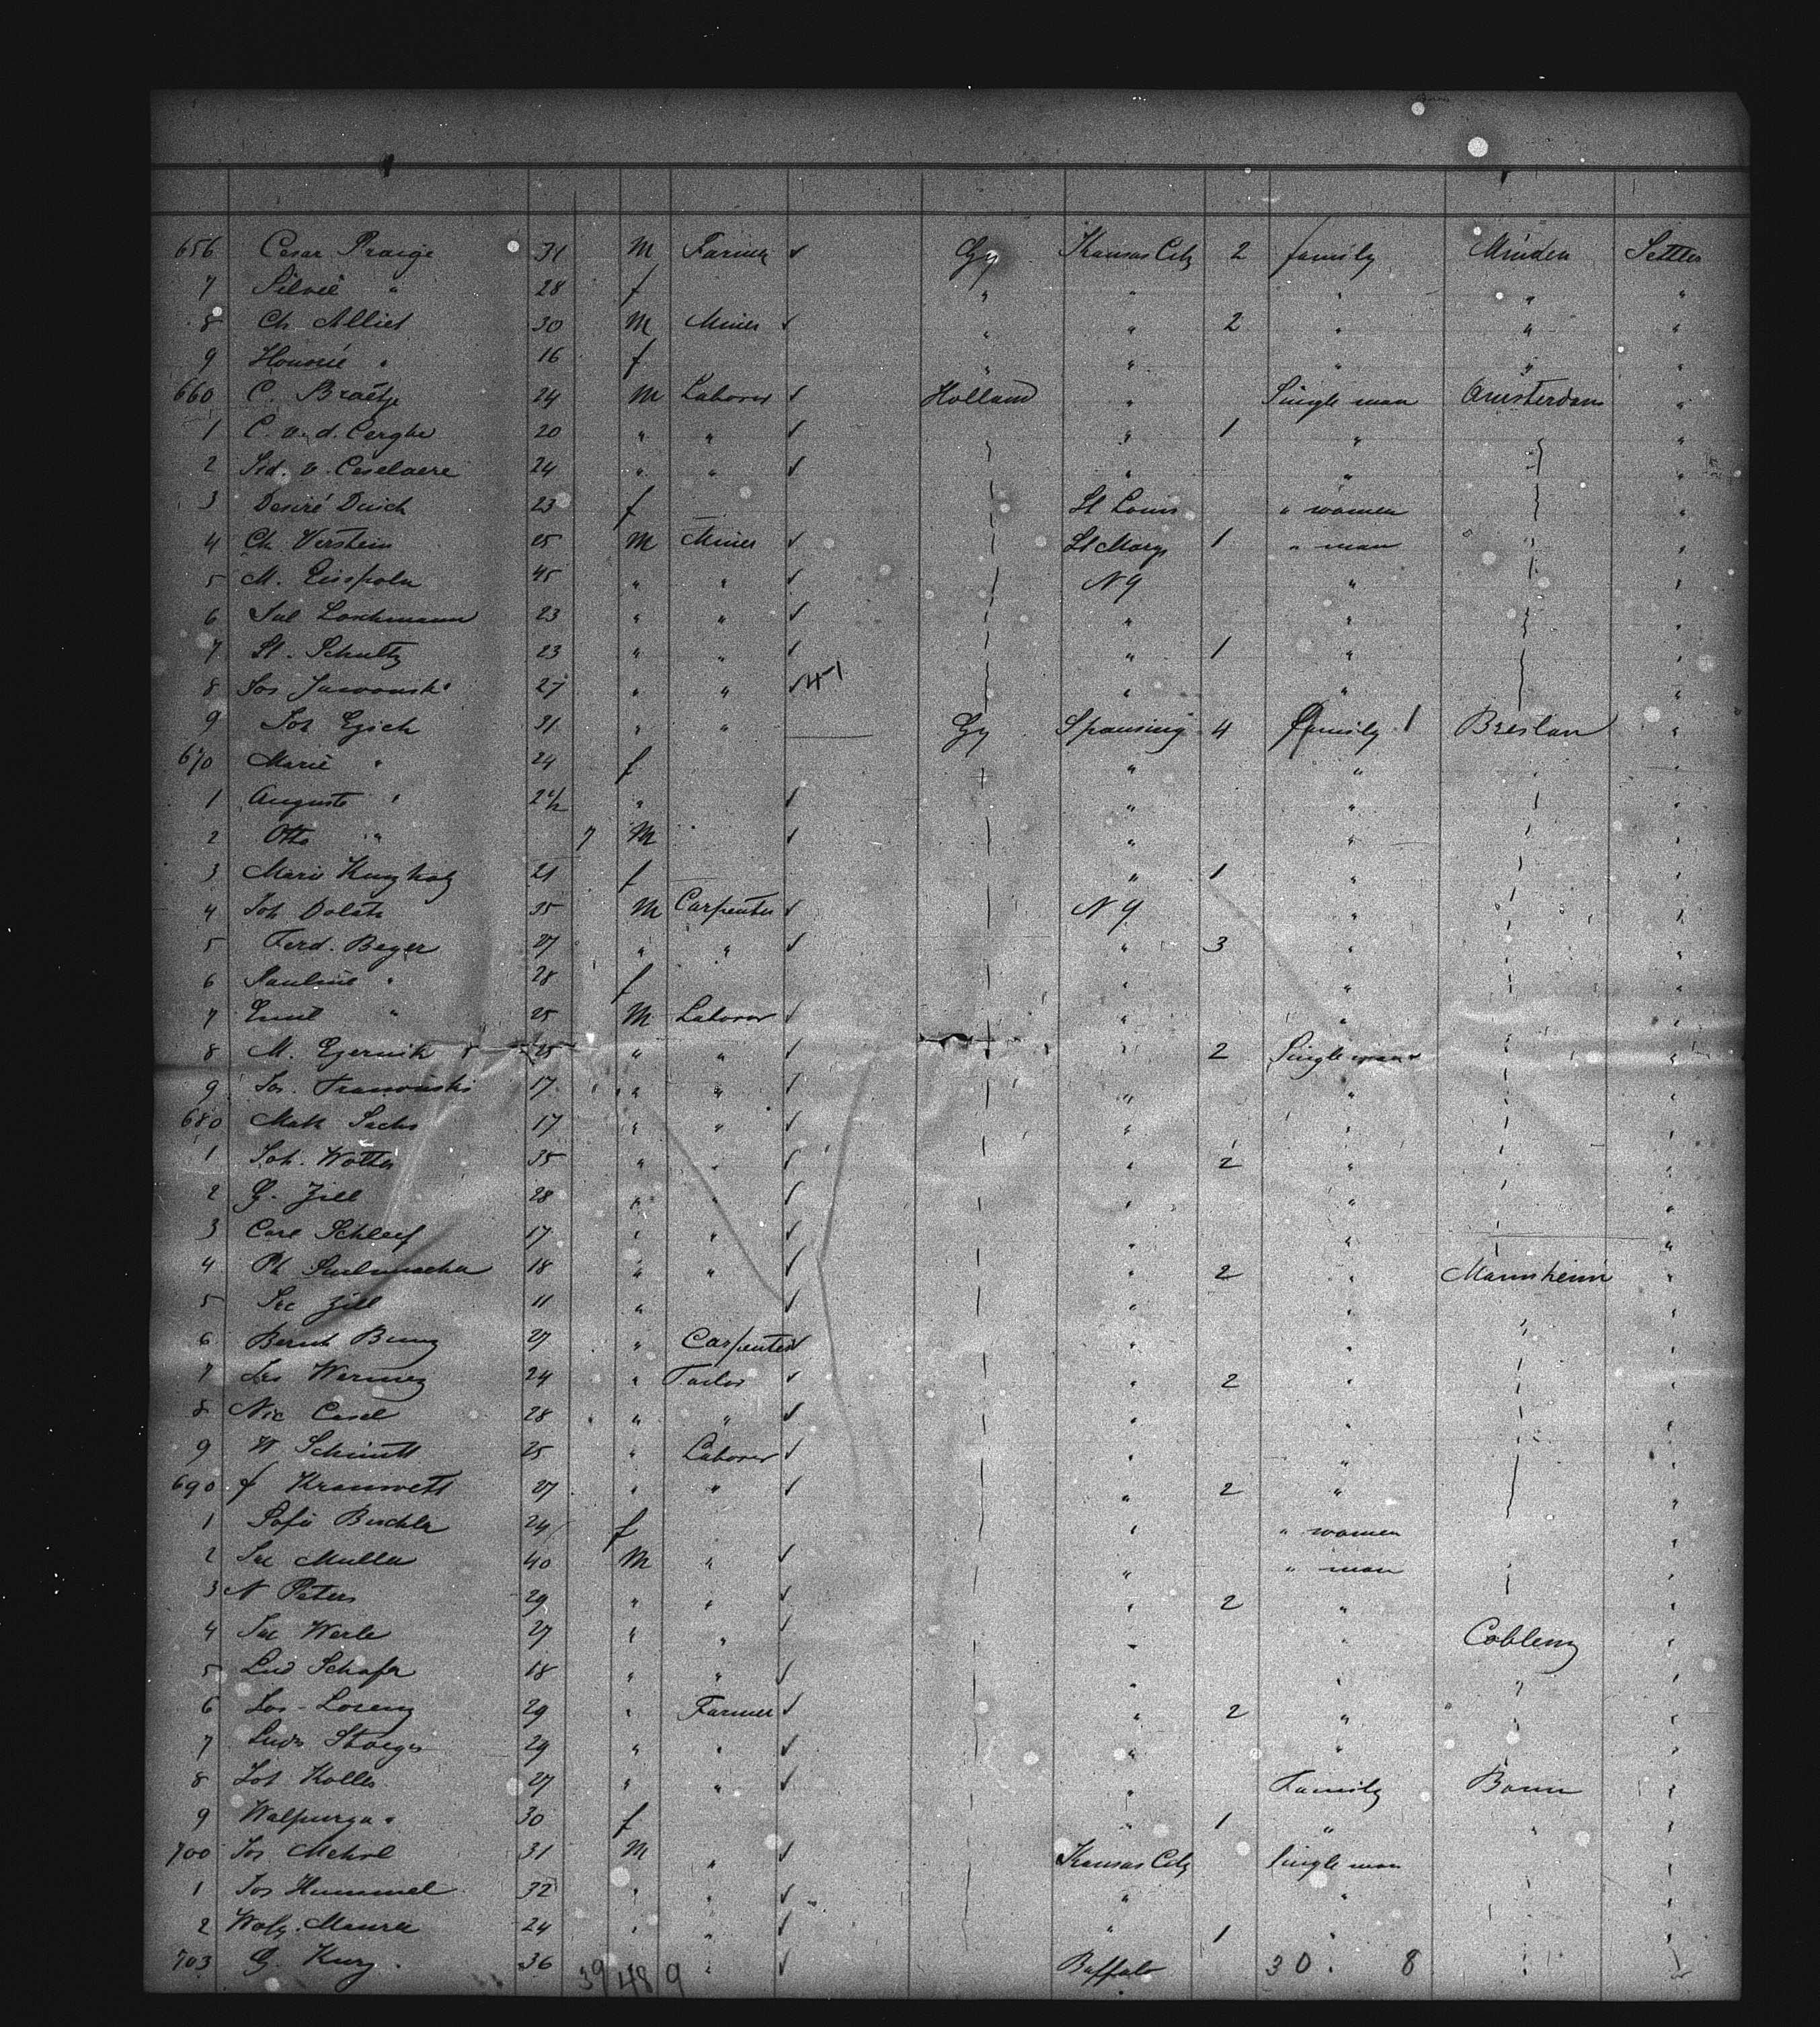 656 Cesar Praige 31 M Farmer ✓ Gy Kansas City 2 family Minden Settler
7 Silvie " 28 f " " " " "
8 Ch Alliet 30 M Miner ✓ " " 2 " " "
9 Honorie " 16 f " " " " "
660 C. Braetje 24 M Laborer ✓ Holland " Single man Amsterdam "
1 C. v. d. Cerghe 20 " " ✓ " 1 " "
2 v. Caselaere 24 " " ✓ " " "
3 Desiré Duich 23 f St Louis " women "
4 Ch Verstein 25 M Miner ✓ St Marys 1 " man "
5 M. 45 " " ✓ N Y " "
6 Jul Loschmann 23 " " ✓ " " "
7 St. Schultz 23 " " ✓ " 1 " "
8 Jos Jaworski 27 " " ✓ " " "
9 Joh Ezich 31 " " Gy 4 family 1 Breslau "
670 Marie " 24 f " " "
1 Auguste " 2 1/2 " ✓ " " "
2 Otto " 7 M ✓ " " "
3 Marie 21 f " 1 " "
4 Joh 35 M Carpenter ✓ N Y " "
5 Ferd. Beyer 27 " " ✓ " 3 " "
6 Pauline " 28 f " " "
7 Ernst " 25 M Laborer ✓ " " "
8 M. Ezernik 25 " " ✓ " 2 Single man "
9 Jos. Franowski 17 " " ✓ " " "
680 Math Sachs 17 " " ✓ " " "
1 Joh. Wotter 35 " " ✓ " 2 " "
2 G. Zill 28 " " ✓ " " "
3 Carl Schleif 17 " " ✓ " " "
4 Ph 18 " " ✓ " 2 " Mannheim "
5 Zill 11 " ✓ " " "
6 Bernh Bunz 27 " Carpenter ✓ " " "
7 24 " Tailor ✓ " 2 " "
8 Nic Casel 28 " " ✓ " " "
9 W Schmitt 25 " Laborer ✓ " " "
690 f 27 " " ✓ " 2 " "
1 Sofie Buchler 24 f " " women "
2 Jac Muller 40 M " ✓ " " man "
3 N Peters 29 " " ✓ " 2 " "
4 Jac Werle 27 " " ✓ " " Coblenz "
5 Lud Schafer 18 " " ✓ " " "
6 Jos. Lorenz 29 " Farmer ✓ " 2 " "
7 29 " " ✓ " " "
8 Joh Koller 27 " " ✓ " Family Bonn "
9 Walpurga " 30 f " 1 " "
700 Jos Mehrl 31 M " ✓ Kansas City Single man "
1 Jos Hummel 32 " " ✓ " " "
2 Wolfg. Maurer 24 " " ✓ " 1 " "
703 G. Kurz 36 " ✓ Buffalo
39 48 9 30 8